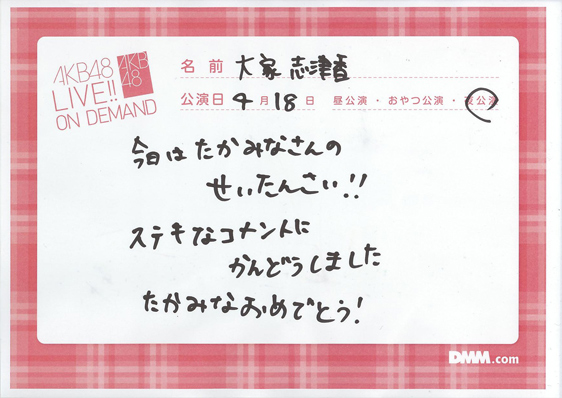 AKB48
LIVE!!
ON DEMAND
AKB
48
名前 大家 志津香
公演日 4月18日 昼公演・おやつ公演・夜公演
今日はたかみなさんの
せいたんさい!!
ステキなコメントに
かんどうしました
たかみなおめでとう!
DMM.com